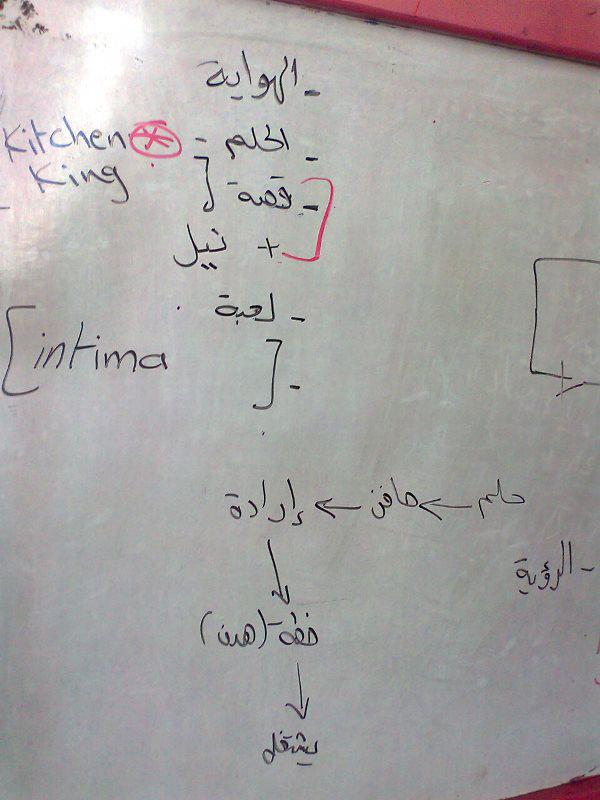 - الهواية
- الحلم - Kitchen King
- قصة
+ نيل
- لعبة
- [intima]
حلم ← حافز ← إرادة
- الرؤية
خطة (هدف)
يشتغل